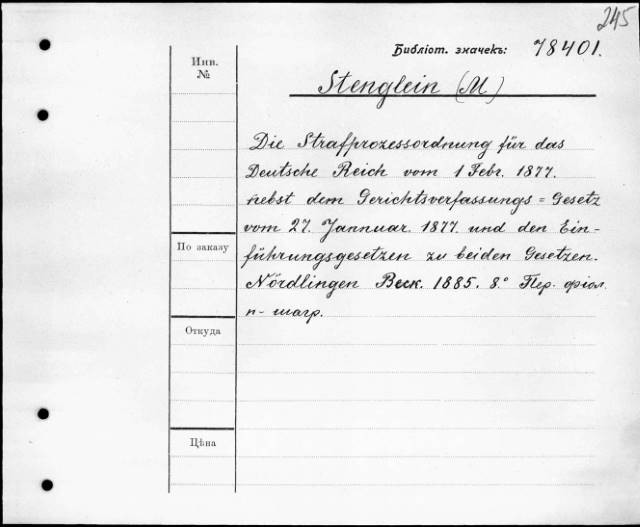 245
Библіот. значекъ: 78401.
Инв.
№
Stenglein (M)
Die Strafprozessordnung für das
Deutsche Reich vom 1 Febr. 1877.
nebst dem Gerichtsverfassungs=Gesetz
vom 27. Jannuar 1877. und den Ein-
führungsgesetzen zu beiden Gesetzen.
По заказу
Nördlingen Beck. 1885. 8.° Пер. фіол.
п- шагр.
Откуда
Цѣна